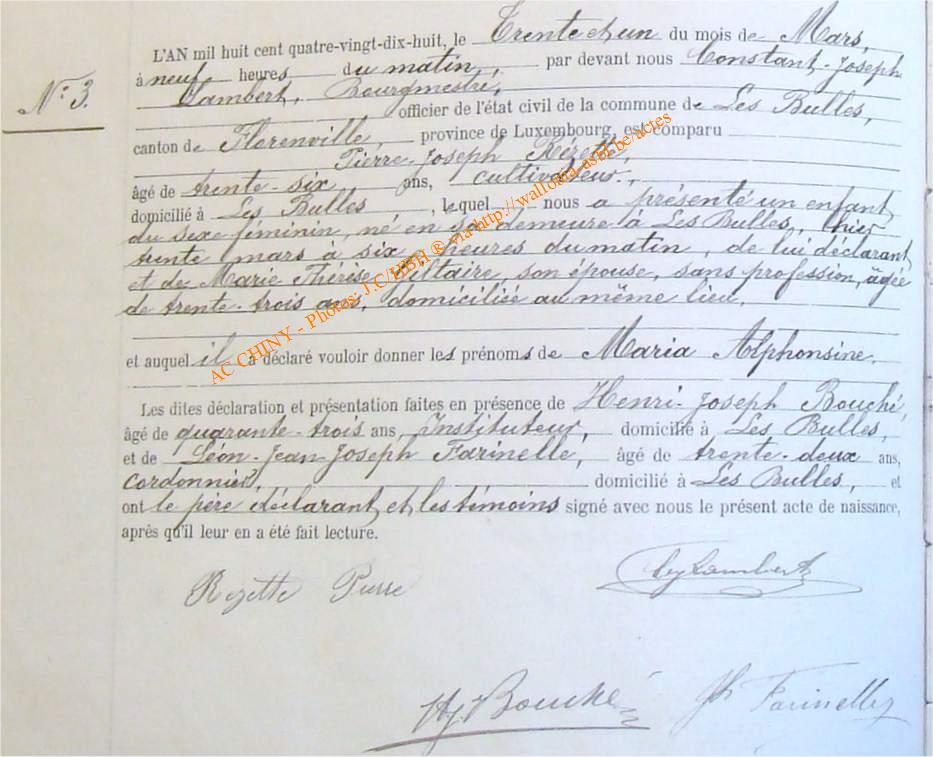 L'AN mil huit cent quatre-vingt-dix-huit, le Trente et un du mois de Mars,
à neuf heures du matin, par devant nous Constant-Joseph
N° 3. Lambert, Bourgmestre,
officier de l'état civil de la commune de Les Bulles,
canton de Florenville, province de Luxembourg, est comparu
Pierre-Joseph Rézette,
âgé de trente-six ans, cultivateur,
domicilié à Les Bulles, lequel nous a présenté un enfant
du sexe féminin, né en sa demeure à Les Bulles, hier
trente mars à six heures du matin, de lui déclarant
et de Marie Thérèse, son épouse, sans profession, âgée
de trente-trois ans, domiciliée au même lieu.
et auquel il a déclaré vouloir donner les prénoms de Maria Alphonsine.
Les dites déclaration et présentation faites en présence de Henri-Joseph Bouché,
âgé de quarante-trois ans, Instituteur, domicilié à Les Bulles,
et de Léon-Jean-Joseph Farinelle, âgé de trente-deux ans,
cordonnier, domicilié à Les Bulles, et
ont le père déclarant et les témoins signé avec nous le présent acte de naissance,
après qu'il leur en a été fait lecture.
Rezette Pierre
Lambert
Bouché
Farinelle
AC CHINY - Photos: J.C/HBH ® via http://wallonia-asbl.be/actes